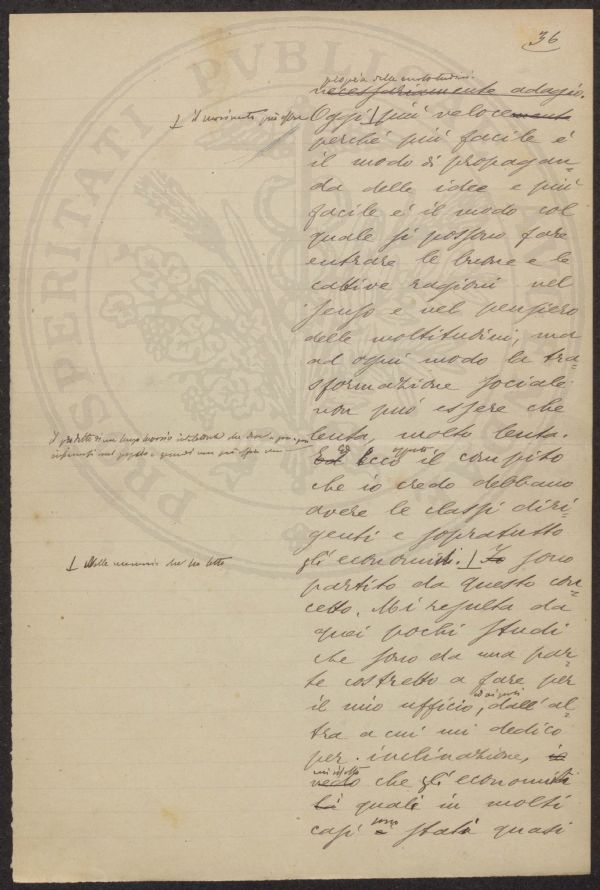 36
propria della
necessariamente adagio.
⊥ il movimento può essere
Oggi | più velocemente
perché più facile é
il modo di propagan-
da delle idee e più
facile é il modo col
quale si possono fare
entrare le buone e le
cattive ragioni nel
senso e nel pensiero
delle moltitudini, ma
ad ogni modo la tra-
sformazione sociale
non può essere che
lenta, molto lenta.
il prodotto di un lungo
e quindi non può essere che
Ed Ecco il compito
che io credo debbano
avere le classi diri-
genti e sopratutto
gli economisti. | Io sono
⊥ Nella memoria che ho letto
partito da questo con-
cetto. Mi resulta da
quei pochi studi
che sono da una par-
te costretto a fare per
il mio ufficio, dall'al-
tra a cui mi dedico
per inclinazione, io
mi risulta
vedo che gli economisti
li quali in molti
casi sono stati quasi
PROSPERITATI PVBLICAE